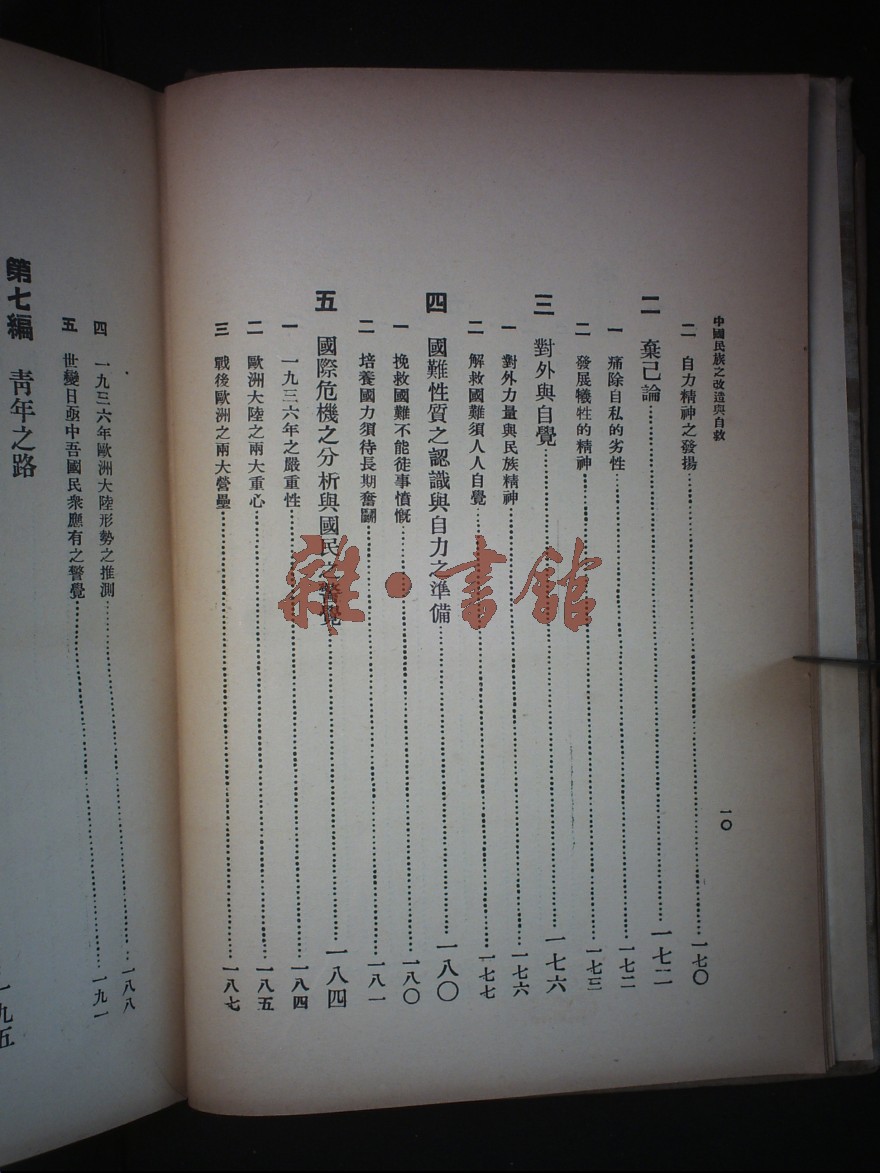 中國民族之改造與自救
一〇
二 自力精神之發揚……一七〇
二 棄己論……一七二
一 痛除自私的劣性……一七二
二 發展犧牲的精神……一七三
三 對外與自覺……一七六
一 對外力量與民族精神……一七六
二 解救國難須人人自覺……一七七
四 國難性質之認識與自力之準備……一八〇
一 挽救國難不能徒事憤慨……一八〇
二 培養國力須待長期奮鬭……一八一
五 國際危機之分析與國民之警覺……一八四
一 一九三六年之嚴重性……一八四
二 歐洲大陸之兩大重心……一八五
三 戰後歐洲之兩大營壘……一八七
四 一九三六年歐洲大陸形勢之推測……一八八
五 世變日亟中吾國民衆應有之警覺……一九一
第七編 青年之路
一九五
雜·書館